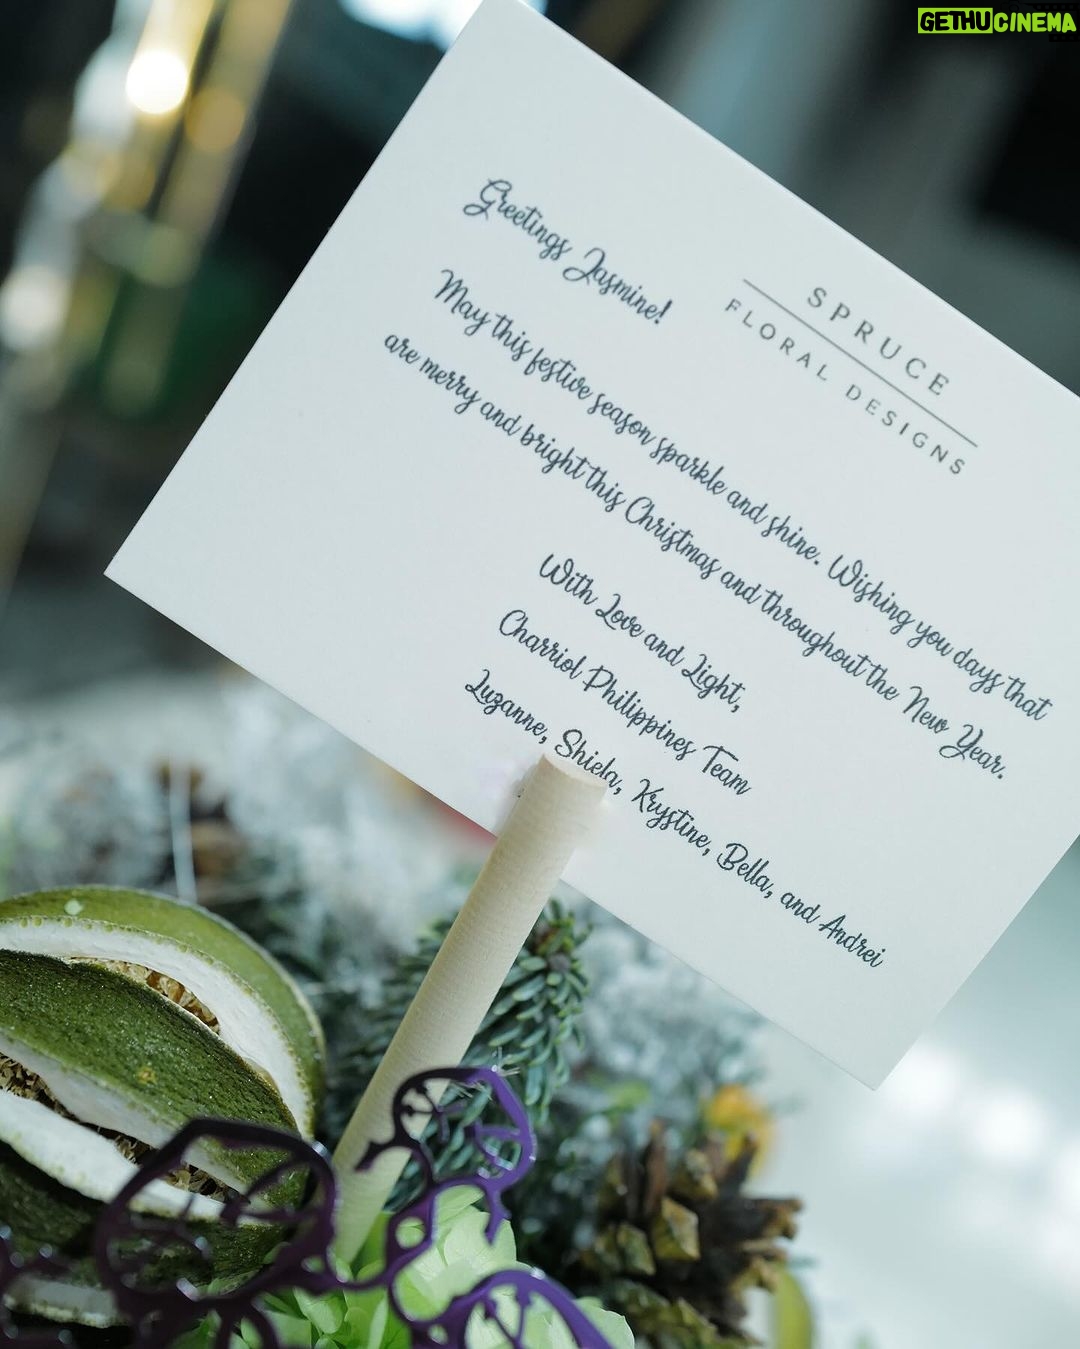 GETHUCINEMA
SPRUCE
FLORAL DESIGNS
Greetings Jasmine!
May this festive season sparkle and shine. Wishing you days that
are merry and bright this Christmas and throughout the New Year.
With Love and Light,
Charriol Philippines Team
Luzanne, Shiela, Krystine, Bella, and Andrei